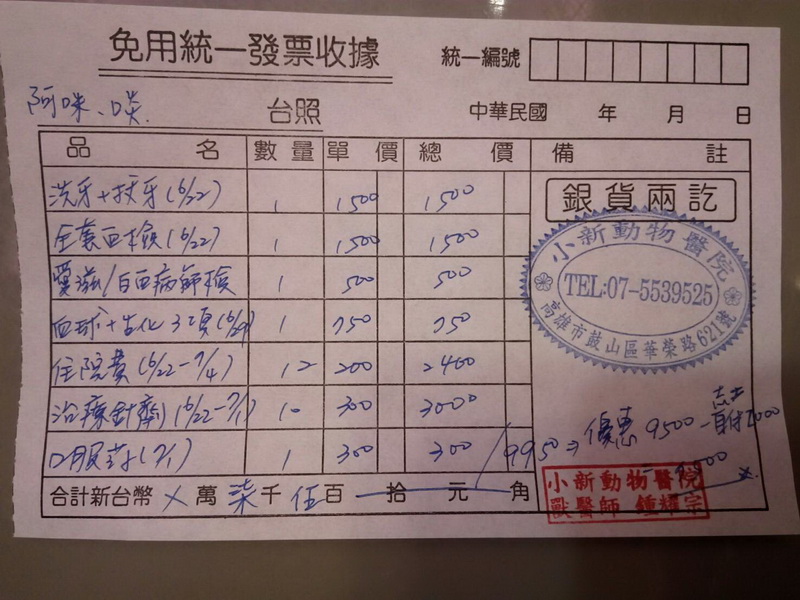 免用統一發票收據
統一編號
阿咪、啖 台照
中華民國 年 月 日
品名 數量 單價 總價 備註
洗牙+拔牙(6/22) 1 1500 1500
全套血檢(6/22) 1 1500 1500
愛滋/白血病篩檢 1 500 500
血球+生化3項(6/29) 1 750 750
住院費(6/22-7/4) 12 200 2400
治療針劑(6/22-7/1) 10 300 3000
口服藥(7/1) 1 300 300
/9950⇒優惠9500-
自付2000
銀貨兩訖
小新動物醫院
TEL:07-5539525
高雄市鼓山區華榮路621號
小新動物醫院
獸醫師 鍾耀宗
合計新台幣 X 萬 柒 千 伍 百 拾 元 角